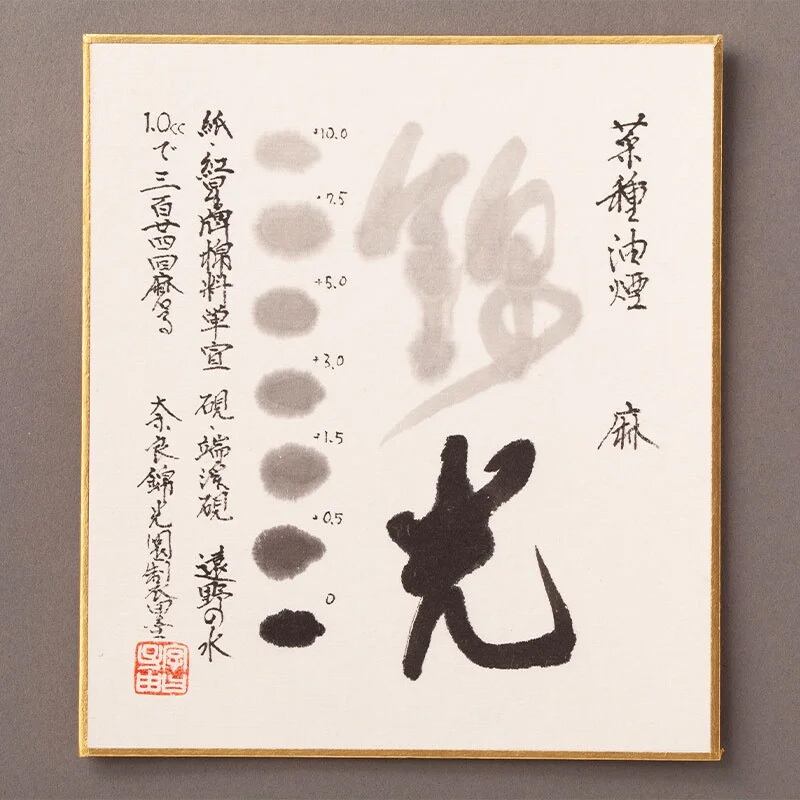 菜種油煙 麻
錦光
+10.0
+7.5
+5.0
+3.0
+1.5
+0.5
0
紙・紅星牌棉料単宣 硯・端渓硯 遠野の水
1.0ccで三百廿四回麻
奈良錦光園製墨